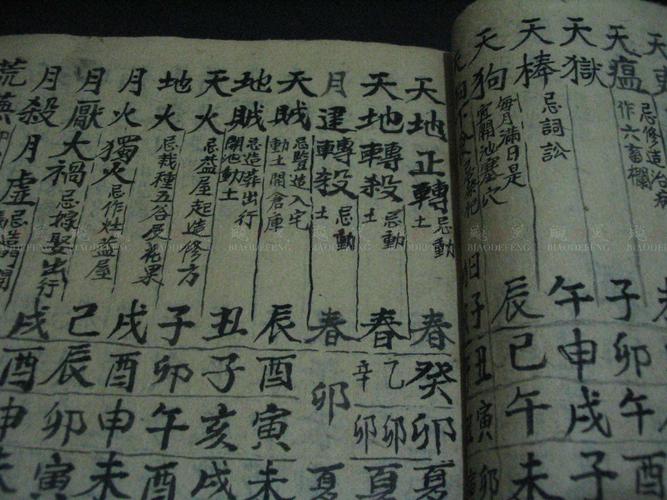 天
天瘟 忌修造治病
作六畜欄 子卯午
天獄 午申戌
天棒 忌詞訟 辰巳午未
天狗 每月滿日是
宜開池塞穴 子丑寅卯
天地正轉 忌動土 春癸卯夏
天地轉殺 忌動土 春乙卯辛卯夏
月建轉殺 忌動土 春卯夏
天賊 忌豎造入宅
動土開倉庫 辰酉寅未
地賊 忌造葬出行
開池動土 丑子亥戌
天火 忌蓋屋起造修方 子卯午酉
地火 忌栽種五谷及花果 戌酉申未
月火 獨火 忌作灶蓋屋 巳辰卯寅
月厭 大禍 忌嫁娶出行 戌酉申未
月殺 月虛
荒蕪
BIAODEFENG BIAODEFENG BIAODEFENG BIAODEFENG BIAODEFENG